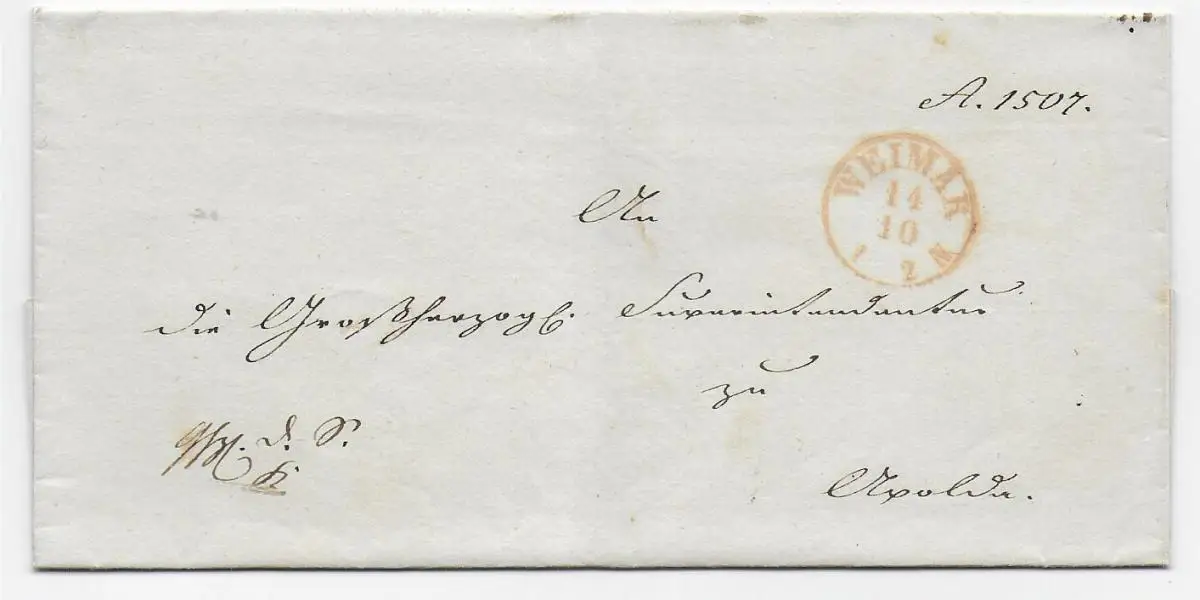 A. 1507.
WEIMAR
14
10
1 2 N
An
die Großherzogl. Superintendentur
zu
d. S.
Apolda.